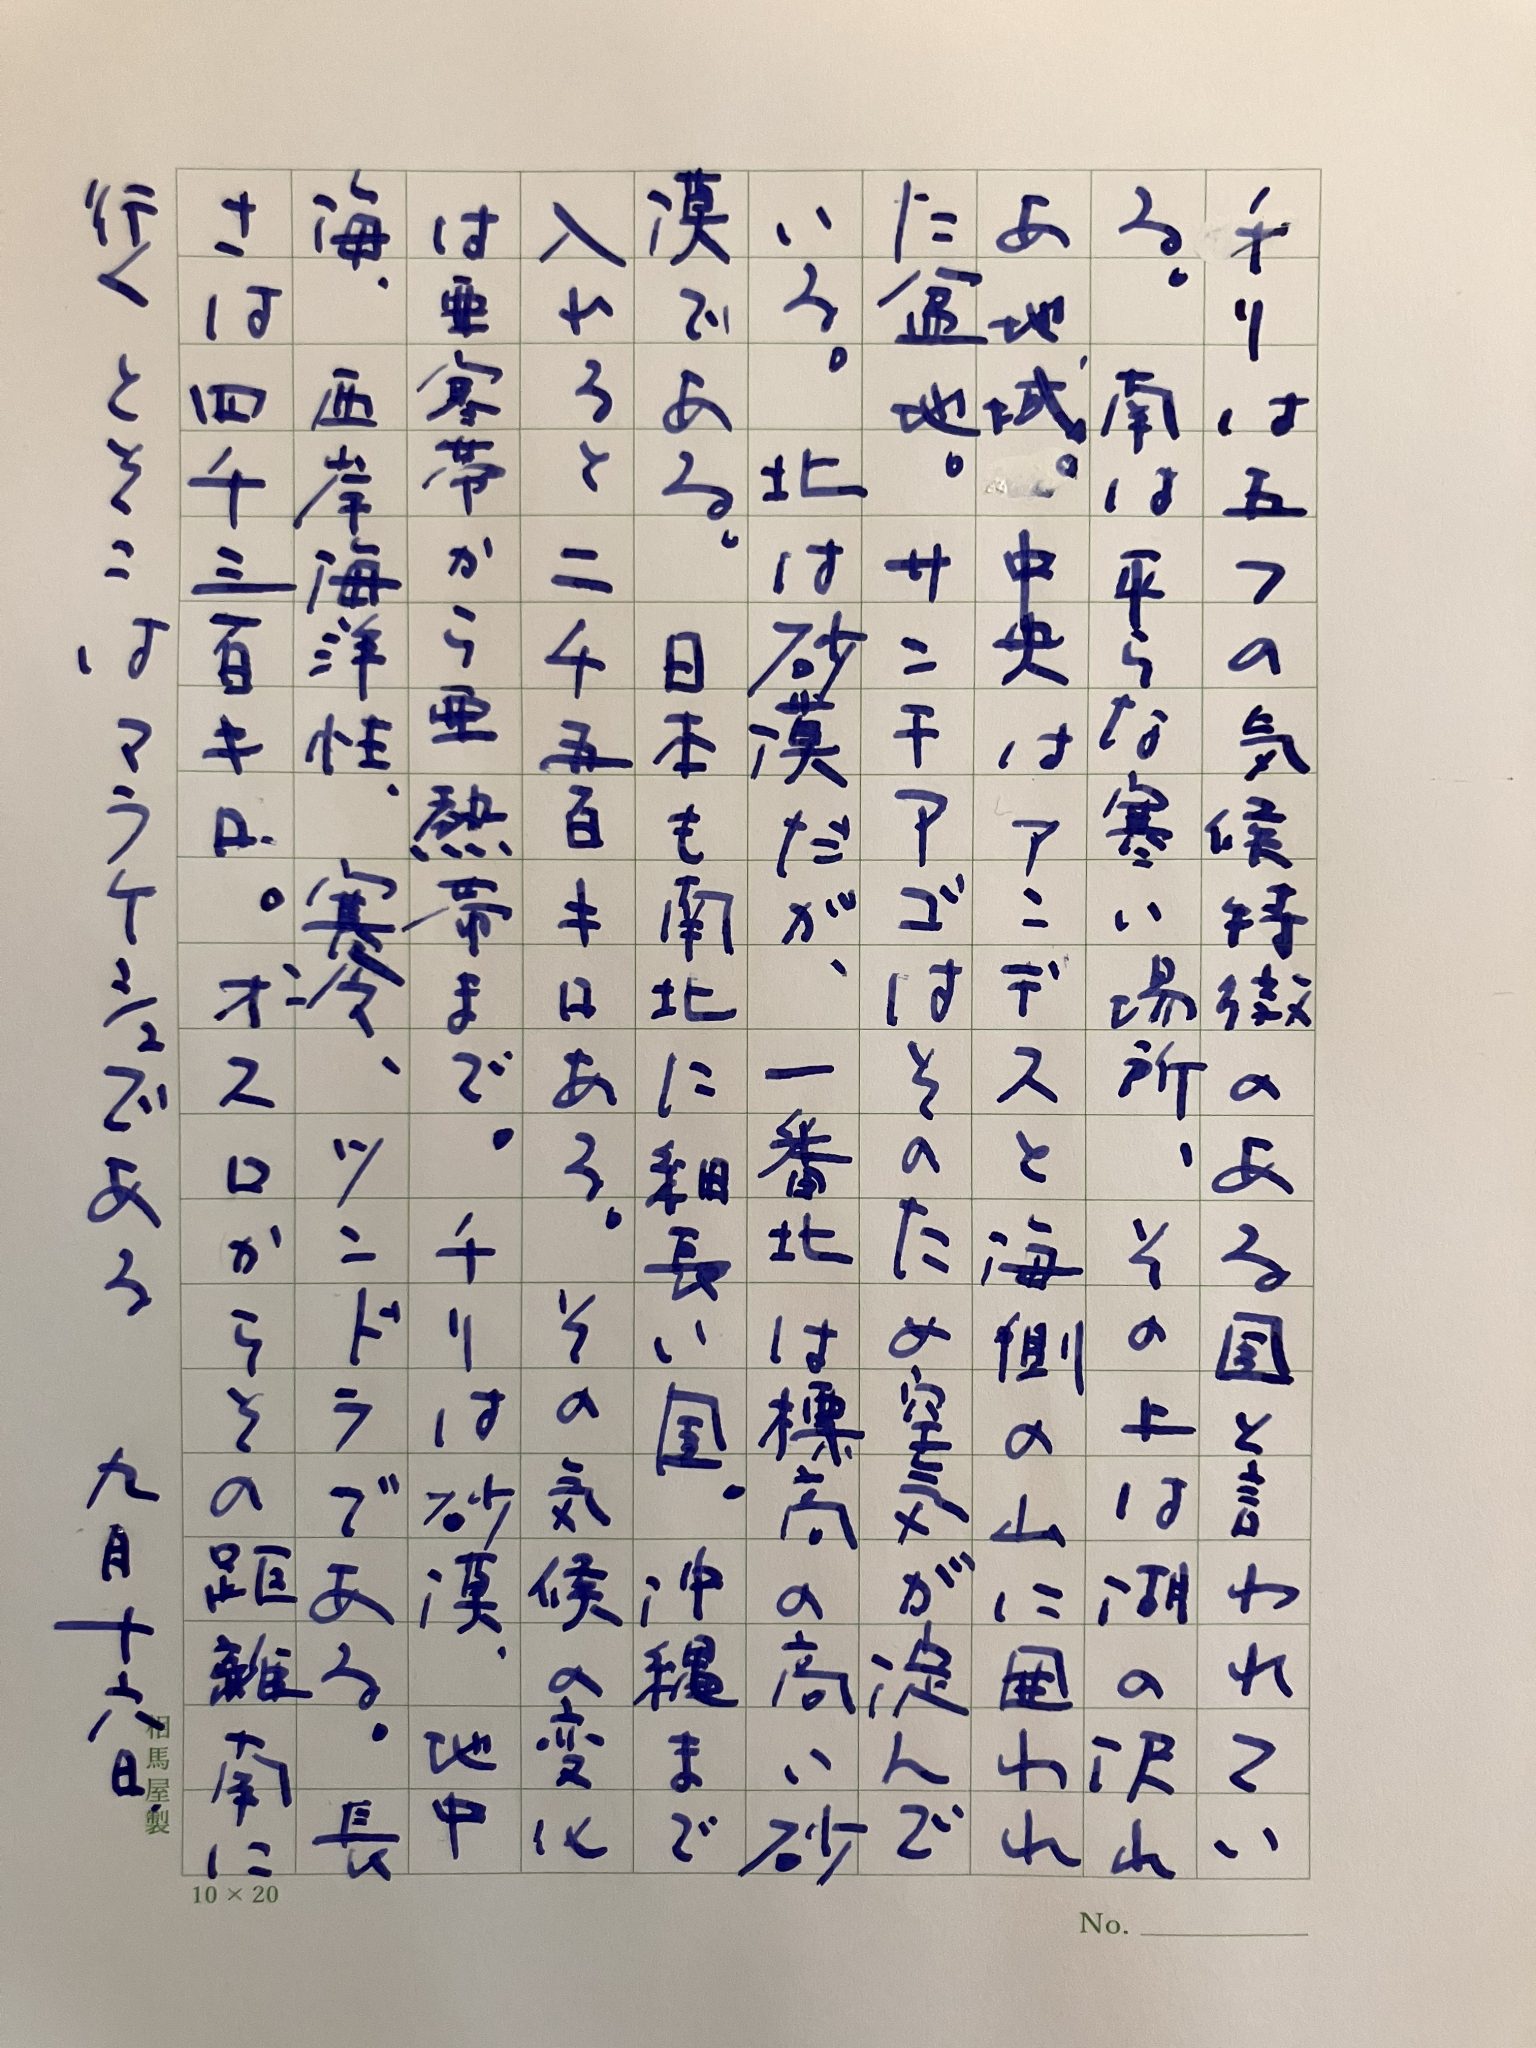 チリは五つの気候特徴のある国と言われてい
る。南は平らな寒い場所、その上は湖の沢れ
ある地域。中央はアンデスと海側の山に囲われ
た盆地。サンチアゴはそのため空気が淀んで
いる。北は砂漠だが、一番北は標高の高い砂
漠である。日本も南北に細長い国。沖縄まで
入れると二千五百キロある。その気候の変化
は亜寒帯から亜熱帯まで。チリは砂漠、地中
海、西岸海洋性、寒冷、ツンドラである。長
さは四千三百キロ。オンスロからその距離南に
行くとそこはマラケシュである 九月十六日
相馬屋製
10×20
No.